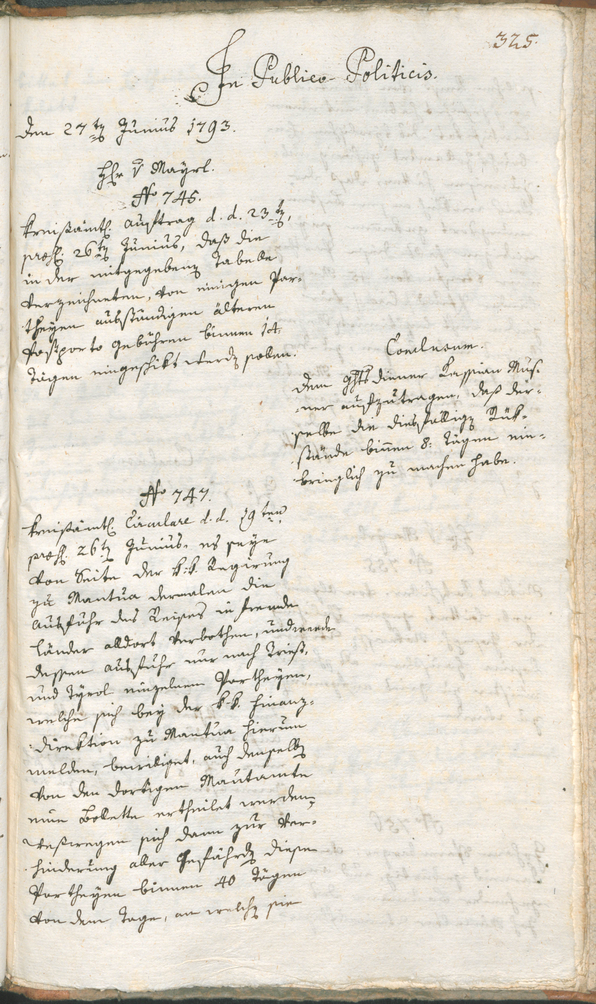 325.
In Publico Politicis.
Den 27ten Junius 1793.
Hr. v Mayrl.
No 745.
Kreisämtl. Auftrag d. d. 23ten,
praes. 26ten Junius, daß die
in der mitgegebenen Tabelle
verzeichneten, von einigen Par-
theyen ausständigen älteren
Postporto Gebühren binnen 14
Tägen eingeschikt werden sollen.
Conclusum.
Dem Ghtsdiener Kassian
aufzutragen, daß der-
selbe die diesfälligen Rük-
stände binnen 8: Tägen ein-
bringlich zu machen habe.
No 747.
Kreisämtl. Circulare d. d. 19ten
praes. 26ten Junius, es seye
von Seite der k: k: Regierung
zu Mantua dermalen die
Ausfuhr des Reises in fremde
Länder alldort verbothen, und werde
dessen Ausfuhr nur nach Triest,
und Tyrol einzelnen Partheyen,
welche sich bey der k: k: Finanz-
direktion zu Mantua hierum
melden, bewilliget, auch denselben
von den dortigen Mautamte
eine Bolette ertheilet werden,
weßwegen sich dann zur Ver-
hinderung aller Gefährden diese
Partheyen binnen 40 Tägen
von dem Tage, an welchen sie